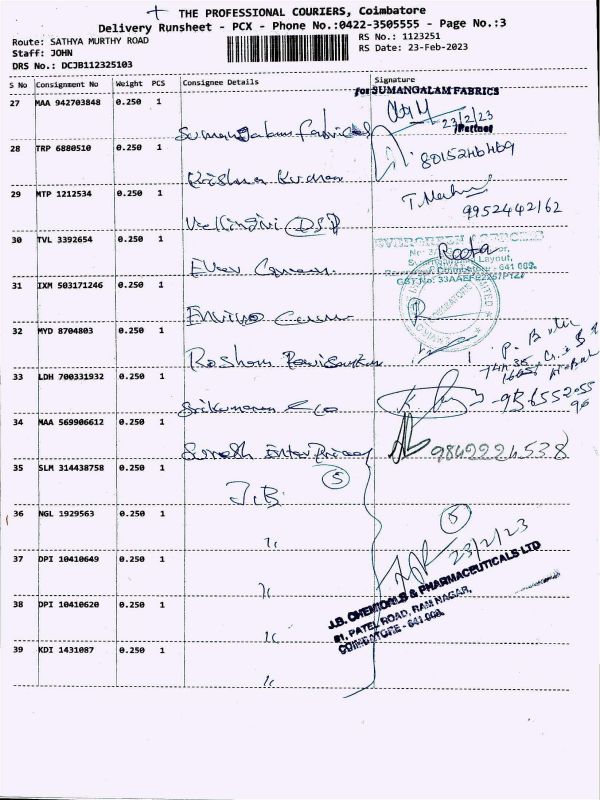 THE PROFESSIONAL COURIERS, Coimbatore
Delivery Runsheet - PCX - Phone No.:0422-3505555 - Page No.:3
Route: SATHYA MURTHY ROAD
Staff: JOHN
DRS No.: DCJB112325103
RS No.: 1123251
RS Date: 23-Feb-2023
S No Consignment No Weight PCS Consignee Details Signature
for SUMANGALAM FABRICS
27 MAA 942703848 0.250 1
Sumangalam Fabrics 23/2/23
Partner
28 TRP 6880510 0.250 1
8015246469
Krishna Kumar
29 MTP 1212534 0.250 1
9952442162
Vellingiri DSP
30 TVL 3392654 0.250 1
EVERGREEN
Reeta
Layout,
Coimbatore - 641 002.
Ever
31 IXM 503171246 0.250 1
Enviro
32 MYD 8704803 0.250 1
Roshan
33 LDH 700331932 0.250 1
Srikumaran & Co
34 MAA 569906612 0.250 1
9842226538
Suresh Enterprises
35 SLM 314438758 0.250 1
5
J.B.
36 NGL 1929563 0.250 1
5
23/2/23
37 DPI 10410649 0.250 1
J.B. CHEMICALS & PHARMACEUTICALS LTD
38 DPI 10410620 0.250 1
61, PATEL ROAD, RAM NAGAR,
COIMBATORE - 641 009.
39 KDI 1431087 0.250 1